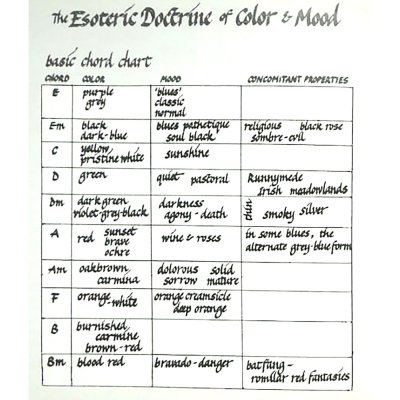 The Esoteric Doctrine of Color & Mood
basic chord chart
CHORD COLOR MOOD CONCOMITANT PROPERTIES
E purple 'blues'
grey classic
normal
Em black blues pathetique religious black rose
dark-blue soul black sombre-evil
C yellow, sunshine
pristine white
D green quiet pastoral Runnymede
Irish meadowlands
Dm dark green darkness thin smoky silver
violet-grey-black agony-death
A red sunset wine & roses in some blues, the
brave alternate grey-blue form
ochre
Am oakbrown, dolorous solid
carmina sorrow mature
F orange-white orange creamsicle
deep orange
B burnished,
carmine,
brown-red
Bm blood red bravado-danger batfang-
romular red fantasies